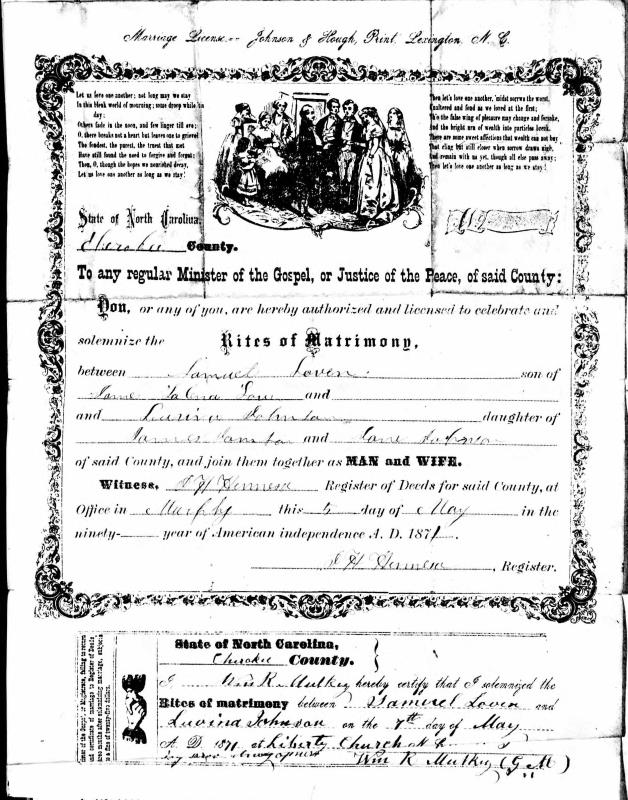 Marriage License-- Johnson & Hough, Print. Lexington N. C.
Let us love one another; not long may we stay
In this bleak world of mourning; some droop while 'tis
day;
Others fade in the noon, and few linger till eve;
O, there breaks not a heart but leaves one to grieve!
The fondest, the purest, the truest that met
Have still found the need to forgive and forget;
Then, O, though the hopes we nourished decay,
Let us love one another as long as we stay!
Then let's love one another, 'midst sorrow the worst,
Unaltered and fond as we loved at the first;
Tho' the false wing of pleasure may change and forsake,
And the bright urn of wealth into particles break.
There are some sweet affections that wealth can not buy,
That cling but still closer when sorrow draws nigh,
And remain with us yet, though all else pass away;
Then let's love one another as long as we stay!
State of North Carolina,
Cherokee County.
To any regular Minister of the Gospel, or Justice of the Peace, of said County:
You, or any of you, are hereby authorized and licensed to celebrate and
solemnize the Rites of Matrimony,
between Samuel Loven son of
and
and Luvina Johnson daughter of
and Jane Johnson
of said County, and join them together as MAN and WIFE.
Witness, Register of Deeds for said County, at
Office in Murphy this 5 day of May in the
ninety- year of American independence A. D. 1871.
, Register.
State of North Carolina,
Cherokee County.
I Wm K. Mulkey hereby certify that I solemnized the
Rites of matrimony between Samuel Loven and
Luvina Johnson on the 7th day of May
A. D. 1871 at Liberty Church N. C.
Wm K Mulkey (G M)